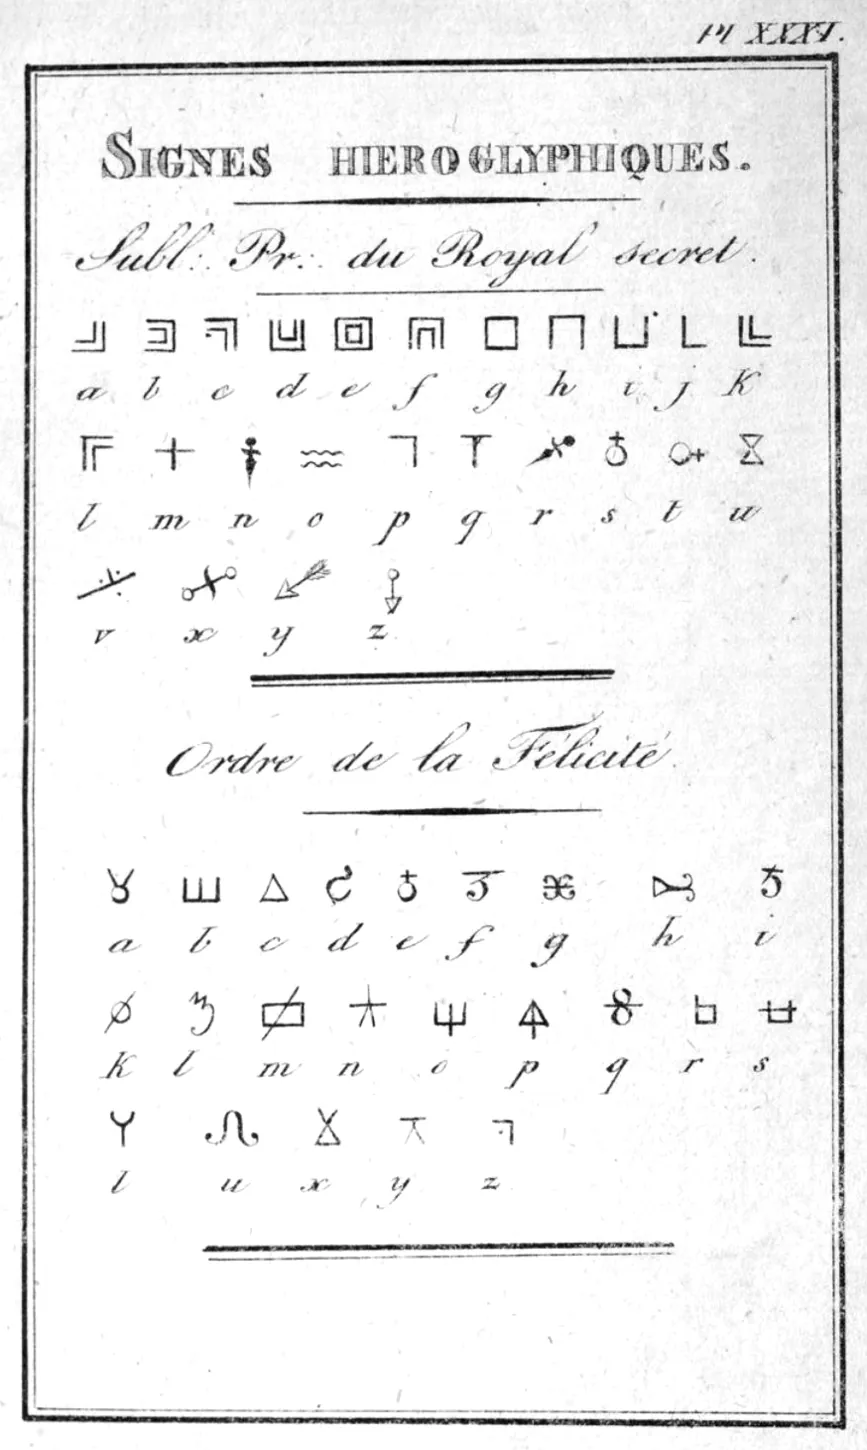 Pl XXXV.
SIGNES HIEROGLYPHIQUES.
Subl∴ Pr∴ du Royal secret.
a b c d e f g h i j K
l m n o p q r s t u
v x y z
Ordre de la Félicité.
a b c d e f g h i
K l m n o p q r s
t u x y z